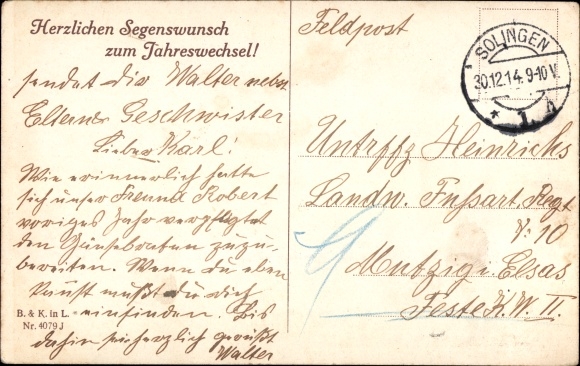 Herzlichen Segenswunsch
zum Jahreswechsel!
sendet dir Walter nebst
Eltern u Geschwister
Lieber Karl!
Wie erinnerlich hatte
sich unser Freund Robert
voriges Jahr verpflichtet
den Gänsebraten zuzu-
bereiten. Wenn du eben
kannst mußt du dich
einfinden. Bis
dahin sei herzlich gegrüßt
Walter
B. & K. in L.
Nr. 4079 J
Feldpost
SOLINGEN
30.12.14. 9-10 V.
* 1 A
Untrffz Heinrichs
Landw. Fussart. Regt
N: 10
Mutzig i. Elsas
Feste K. W. II.